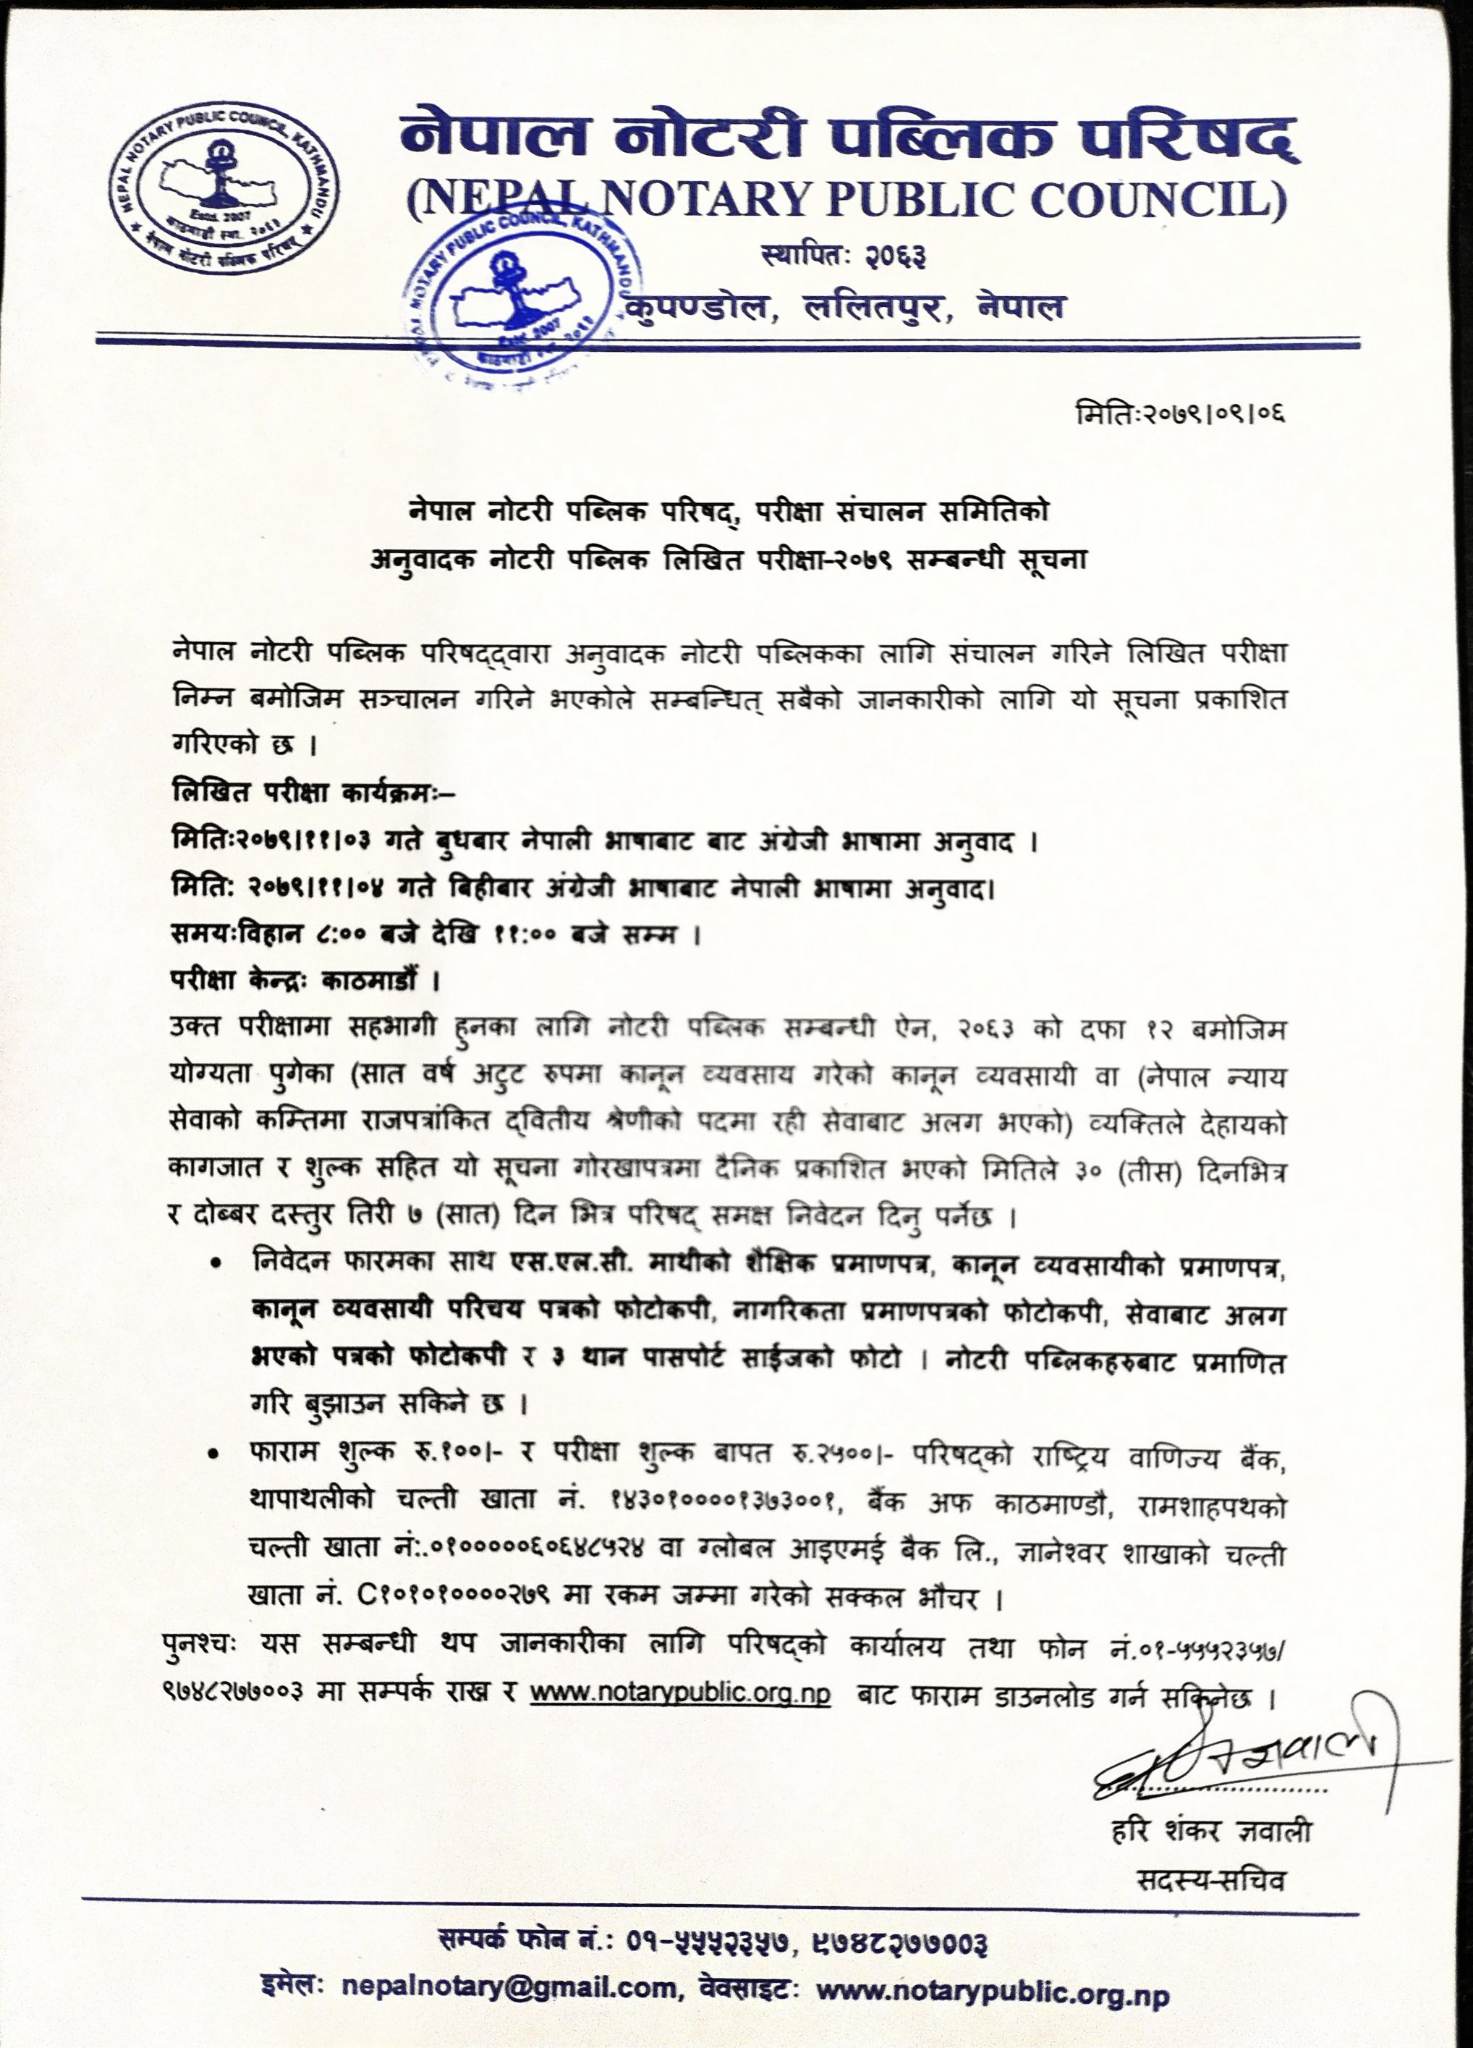 NEPAL NOTARY PUBLIC COUNCIL, KATHMANDU
Estd. 2007
काठमाडौं स्था. २०६३
नेपाल नोटरी पब्लिक परिषद
नेपाल नोटरी पब्लिक परिषद
(NEPAL NOTARY PUBLIC COUNCIL)
स्थापितः २०६३
कुपण्डोल, ललितपुर, नेपाल
NOTARY PUBLIC COUNCIL, KATHMANDU
Estd. 2007
मितिः२०७९।०९।०६
नेपाल नोटरी पब्लिक परिषद्, परीक्षा संचालन समितिको
अनुवादक नोटरी पब्लिक लिखित परीक्षा-२०७९ सम्बन्धी सूचना
नेपाल नोटरी पब्लिक परिषद्द्वारा अनुवादक नोटरी पब्लिकका लागि संचालन गरिने लिखित परीक्षा
निम्न बमोजिम सञ्चालन गरिने भएकोले सम्बन्धित् सबैको जानकारीको लागि यो सूचना प्रकाशित
गरिएको छ ।
लिखित परीक्षा कार्यक्रमः–
मितिः२०७९।११।०३ गते बुधबार नेपाली भाषाबाट बाट अंग्रेजी भाषामा अनुवाद ।
मिति: २०७९।११।०४ गते बिहीबार अंग्रेजी भाषाबाट नेपाली भाषामा अनुवाद।
समयःविहान ८:०० बजे देखि ११:०० बजे सम्म ।
परीक्षा केन्द्रः काठमाडौं ।
उक्त परीक्षामा सहभागी हुनका लागि नोटरी पब्लिक सम्बन्धी ऐन, २०६३ को दफा १२ बमोजिम
योग्यता पुगेका (सात वर्ष अटुट रुपमा कानून व्यवसाय गरेको कानून व्यवसायी वा (नेपाल न्याय
सेवाको कम्तिमा राजपत्रांकित द्वितीय श्रेणीको पदमा रही सेवाबाट अलग भएको) व्यक्तिले देहायको
कागजात र शुल्क सहित यो सूचना गोरखापत्रमा दैनिक प्रकाशित भएको मितिले ३० (तीस) दिनभित्र
र दोब्बर दस्तुर तिरी ७ (सात) दिन भित्र परिषद् समक्ष निवेदन दिनु पर्नेछ ।
• निवेदन फारमका साथ एस.एल.सी. माथीको शैक्षिक प्रमाणपत्र, कानून व्यवसायीको प्रमाणपत्र,
कानून व्यवसायी परिचय पत्रको फोटोकपी, नागरिकता प्रमाणपत्रको फोटोकपी, सेवाबाट अलग
भएको पत्रको फोटोकपी र ३ थान पासपोर्ट साईजको फोटो । नोटरी पब्लिकहरुबाट प्रमाणित
गरि बुझाउन सकिने छ ।
• फाराम शुल्क रु.१००।- र परीक्षा शुल्क बापत रु.२५००।- परिषद्को राष्ट्रिय वाणिज्य बैंक,
थापाथलीको चल्ती खाता नं. १४३०१००००१३७३००१, बैंक अफ काठमाण्डौ, रामशाहपथको
चल्ती खाता नं:.०१०००००६०६४८५२४ वा ग्लोबल आइएमई बैक लि., ज्ञानेश्वर शाखाको चल्ती
खाता नं. C१०१०१००००२७९ मा रकम जम्मा गरेको सक्कल भौचर ।
पुनश्चः यस सम्बन्धी थप जानकारीका लागि परिषद्को कार्यालय तथा फोन नं.०१-५५५२३५७/
९७४८२७७००३ मा सम्पर्क राख्न र www.notarypublic.org.np बाट फाराम डाउनलोड गर्न सकिनेछ ।
हरि शंकर ज्ञवाली
सदस्य-सचिव
सम्पर्क फोन नं.: ०१-५५५२३५७, ९७४८२७७००३
इमेलः nepalnotary@gmail.com, वेवसाइटः www.notarypublic.org.np